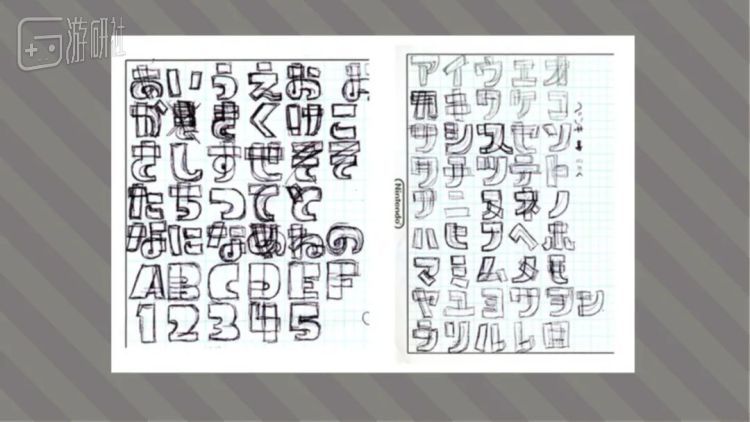 游研社
あいうえお お
がきくけこ
さしすせそそ
たちつてと
なになぬねの
ABCDEF
12345
Nintendo
アイウエオ
カキクケコ
サシスセソ
タチツテト
ナニヌネノ
ハヒフヘホ
マミムメモ
ヤユヨワヲン
ラリルレロ